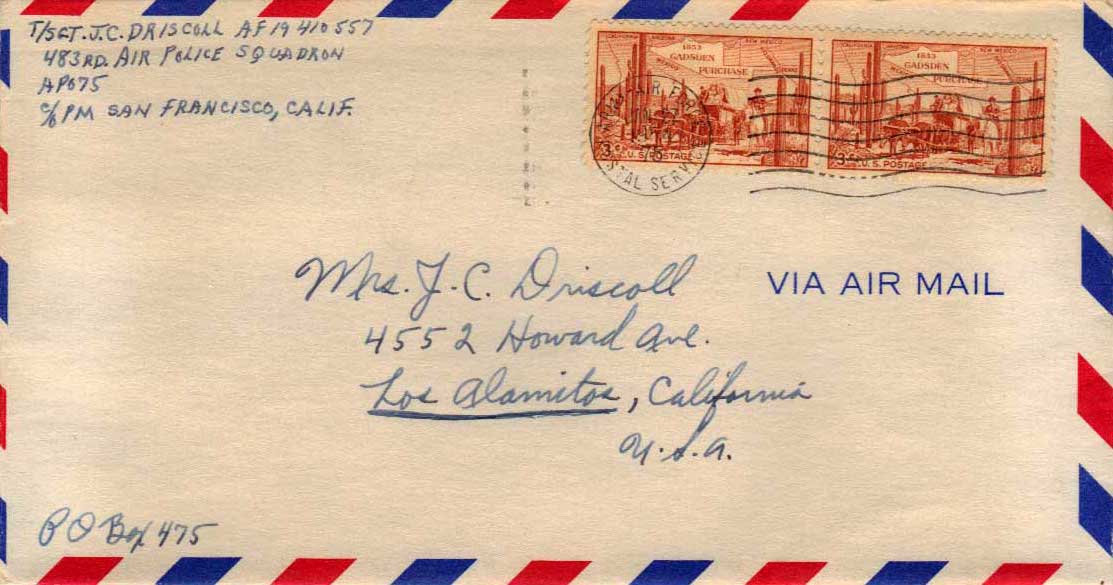 T/SGT. J.C. DRISCOLL AF 19 410 557
483RD. AIR POLICE SQUADRON
APO 75
C/O PM SAN FRANCISCO, CALIF.
1853
GADSDEN
PURCHASE
3¢ U.S. POSTAGE
NEW MEXICO
1853
GADSDEN
PURCHASE
3¢ U.S. POSTAGE
AIR FORCE
POSTAL SERVICE
Mrs. J. C. Driscoll
VIA AIR MAIL
4552 Howard Ave.
Los Alamitos, California
U.S.A.
PO Box 475